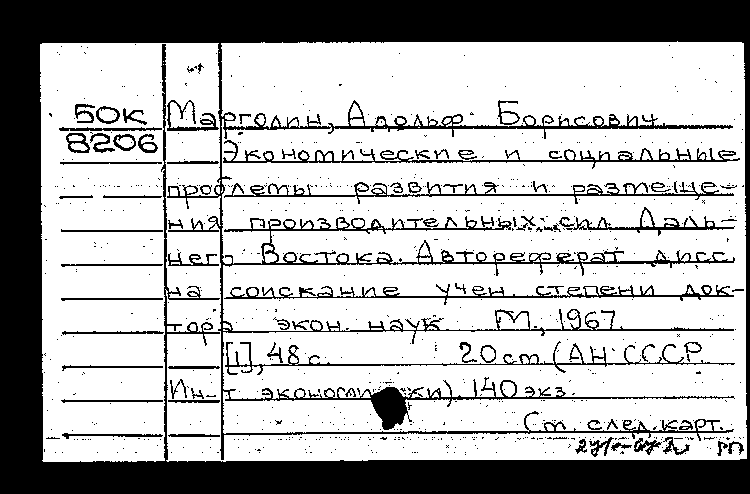 БОК Марголин, Адольф Борисович.
8206 Экономические и социальные
проблемы развития и размеще-
ния производительных сил Даль-
него Востока. Автореферат дисс.
на соискание учен. степени док-
тора экон. наук М., 1967.
[1], 48 с. 20 cm (АН СССР.
Ин-т экономики). 140 экз.
См. след. карт.